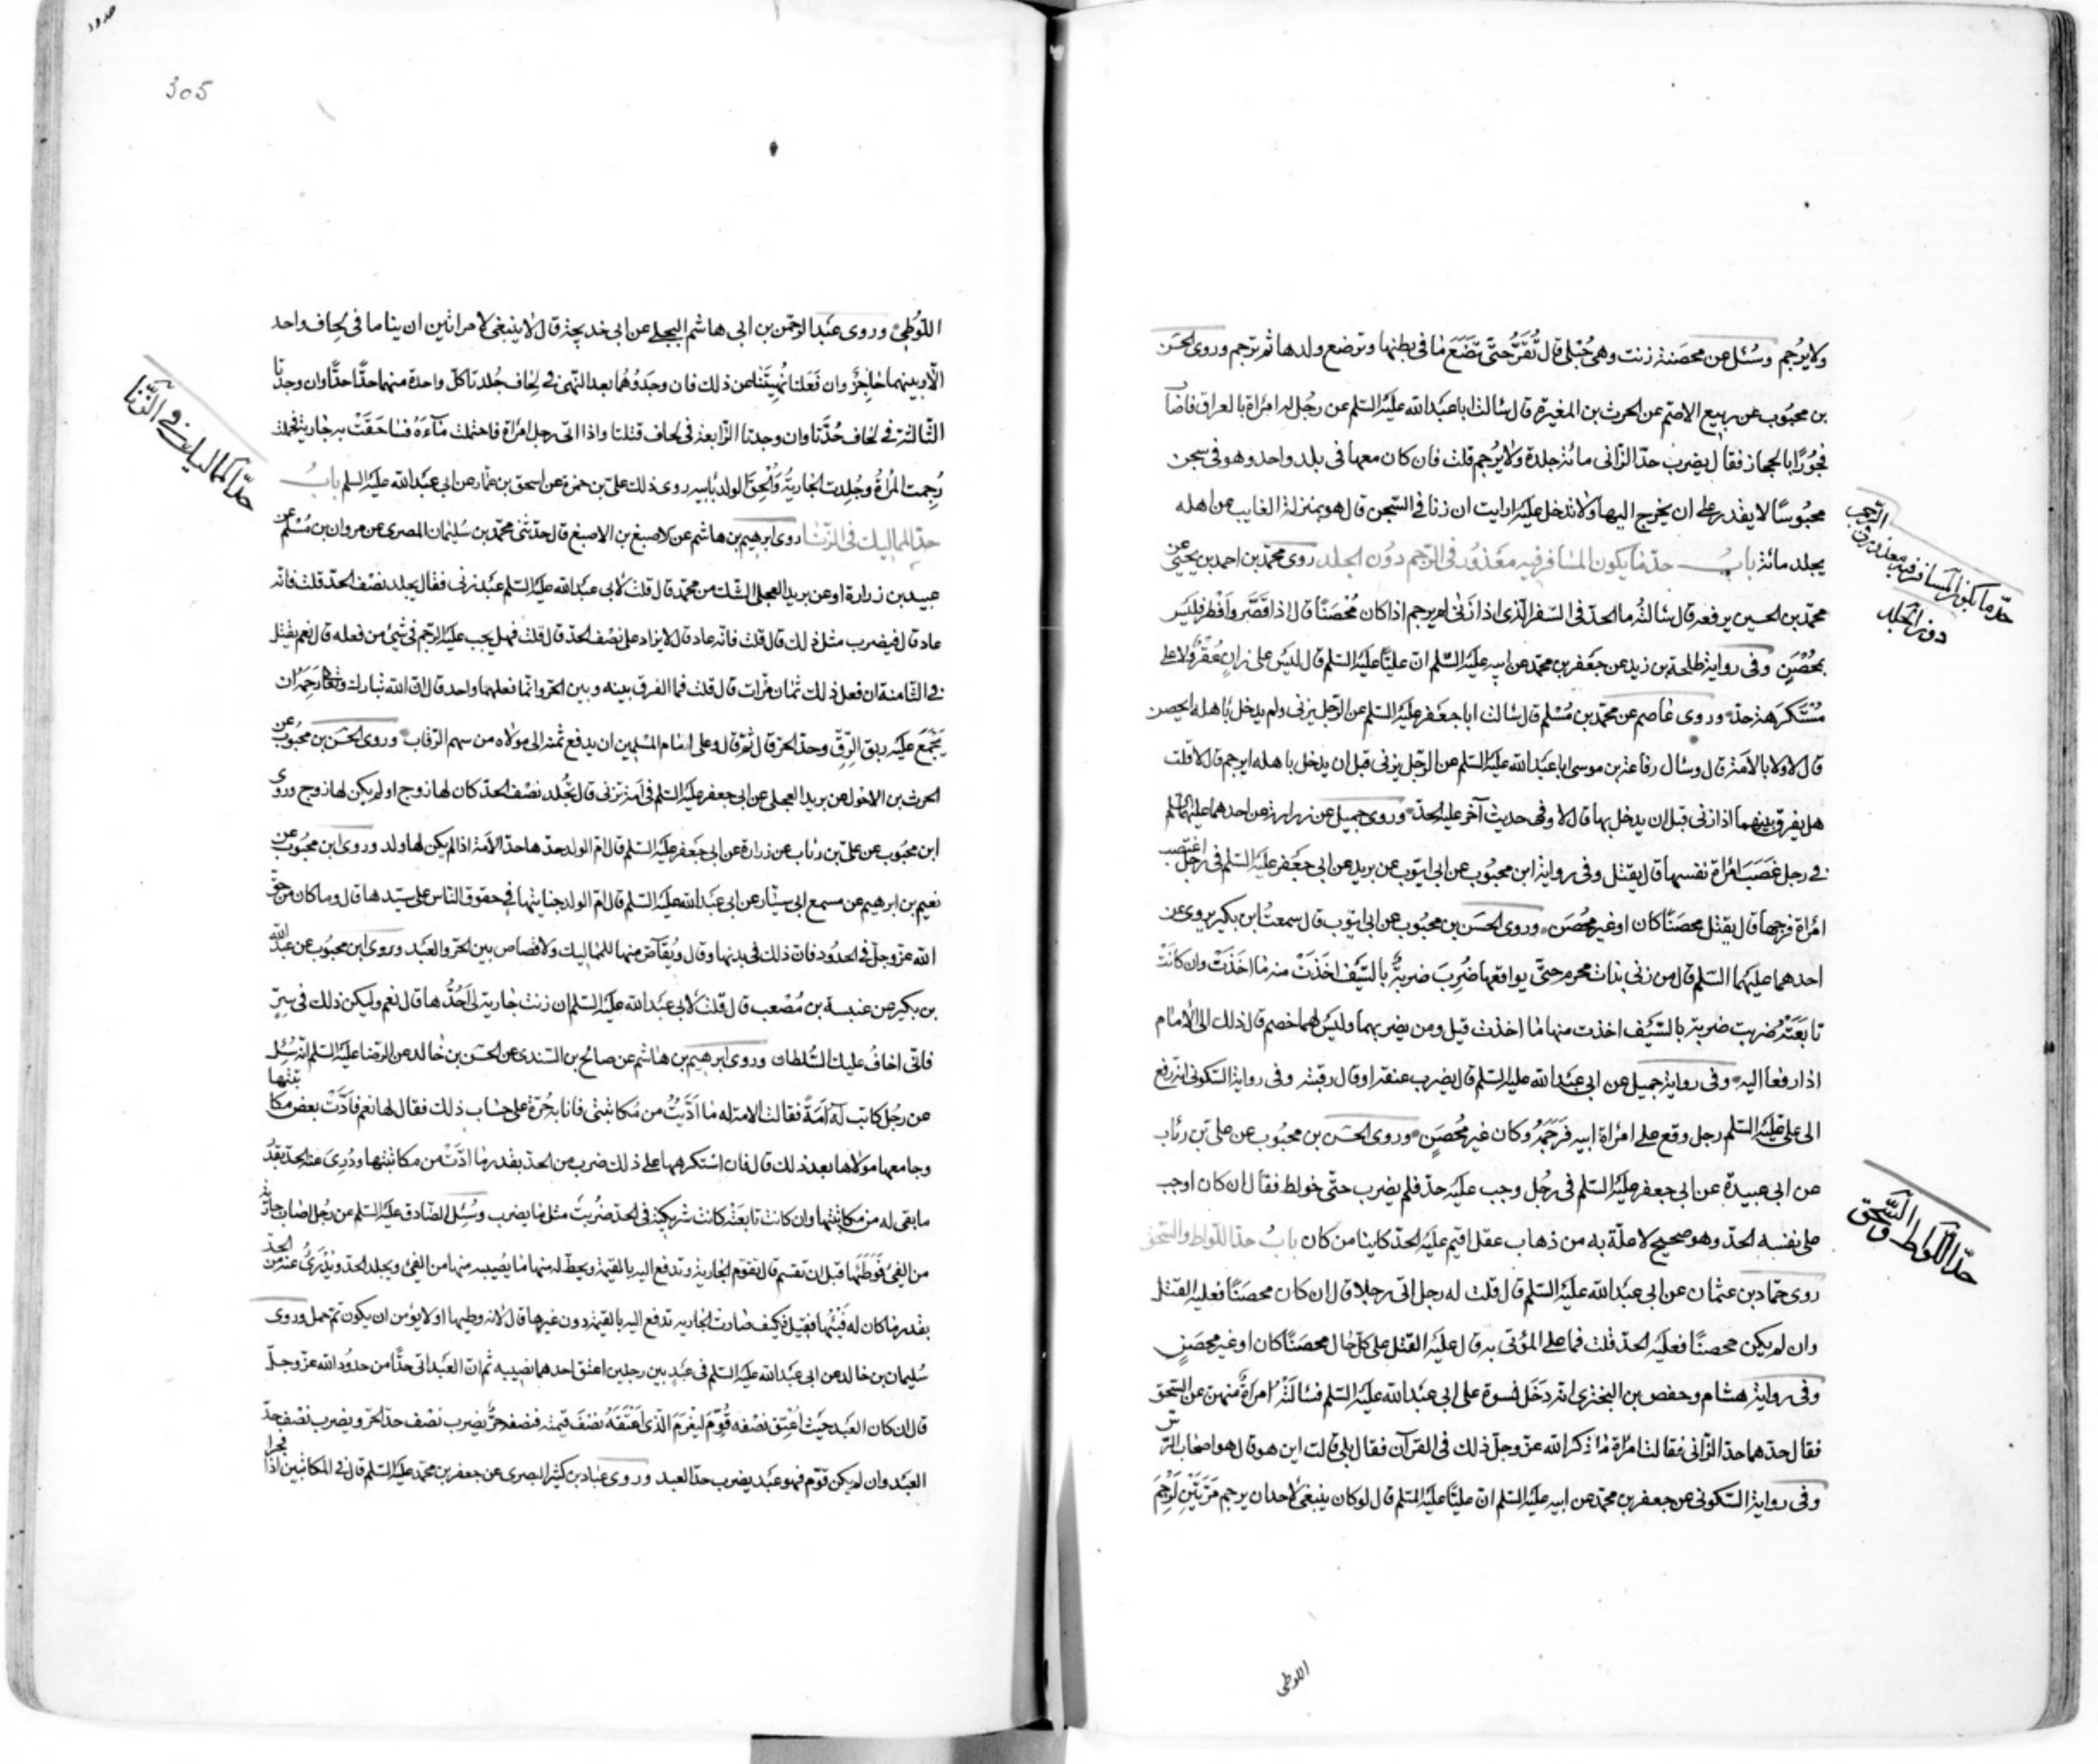 ولا يرجم وسئل عن محصنة زنت وهي حبلى قال تقر حتى تضع ما في بطنها وترضع ولدها ثم ترجم وروى الحسن
بن محبوب عن ربيع الاصم عن الحرث بن المغيرة قال سالت ابا عبد الله عليه السلم عن رجل له امراة بالعراق فاصاب
فجورا بالحجاز فقال يضرب حد الزاني مائة جلدة ولا يرجم قلت فان كان معها في بلد واحد وهو في سجن
محبوسا لا يقدر على ان يخرج اليها ولا تدخل عليه ارايت ان زنا في السجن قال هو بمنزلة الغايب عن اهله
يجلد مائة باب حد ما يكون المسافر فيه معذور في الرجم دون الجلد روى محمد بن احمد بن يحيى عن
محمد بن الحسين يرفعه قال سالته ما الحد في السفر الذي اذا زنى لم يرجم اذا كان محصنا قال اذا قصر وافطر فليس
بمحصن وفي رواية طلحة بن زيد عن جعفر بن محمد عن ابيه عليه السلم ان عليا عليه السلم قال ليس على زان عقر ولا على
مستكرهة حد وروى عاصم عن محمد بن مسلم قال سالت ابا جعفر عليه السلم عن الرجل يزني ولم يدخل باهله ايحصن
قال لا ولا بالامة قال وسال رفاعة بن موسى ابا عبد الله عليه السلم عن الرجل يزني قبل ان يدخل باهله ايرجم قال لا قلت
هل يفرق بينهما اذا زنى قبل ان يدخل بها قال لا وفي حديث آخر عليه الحد وروى جميل عن زرارة عن احدهما عليهما السلم
في رجل غصب امراة نفسها قال يقتل وفي رواية ابن محبوب عن ابي ايوب عن بريد عن ابي جعفر عليه السلم في رجل اغتصب
امراة فرجها قال يقتل محصنا كان او غير محصن وروى الحسن بن محبوب عن ابي ايوب قال سمعت ابن بكير يروي عن
احدهما عليهما السلم قال من زنى بذات محرم حتى يواقعها ضرب ضربة بالسيف اخذت منه ما اخذت وان كانت
تابعته ضربت ضربة بالسيف اخذت منها ما اخذت قيل ومن يضربهما وليس لهما خصم قال ذلك الى الامام
اذا رفعا اليه وفي رواية جميل عن ابي عبد الله عليه السلم قال يضرب عنقه او قال رقبته وفي رواية السكوني انه رفع
الى على عليه السلم رجل وقع على امراة ابيه فرجمه وكان غير محصن وروى الحسن بن محبوب عن على بن رئاب
عن ابي عبيدة عن ابي جعفر عليه السلم في رجل وجب عليه حد فلم يضرب حتى خولط فقال ان كان اوجب
على نفسه الحد وهو صحيح لا علة به من ذهاب عقل اقيم عليه الحد كاينا من كان باب حد اللواط والسحق
روى حماد بن عثمان عن ابي عبد الله عليه السلم قال قلت له رجل اتى رجلا قال ان كان محصنا فعليه القتل
وان لم يكن محصنا فعليه الحد قلت فما على المؤتى به قال عليه القتل على كل حال محصنا كان او غير محصن
وفي رواية هشام وحفص بن البختري انه دخل نسوة على ابي عبد الله عليه السلم فسالته امراة منهن عن السحق
فقال حدها حد الزاني فقالت امراة ما ذكر الله عز وجل ذلك في القرآن فقال بلى قالت اين هو قال هو اصحاب الرس
وفي رواية السكوني عن جعفر بن محمد عن ابيه عليه السلم ان عليا عليه السلم قال لو كان ينبغي لاحد ان يرجم مرتين لرجم
اللوطي
حد ما يكون المسافر فيه معذور في الرجم
دون الجلد
حد اللواط والسحق
حدود
305
اللوطي وروى عبد الرحمن بن ابي هاشم البجلي عن ابي خديجة قال لا ينبغي لامراتين ان يناما في لحاف واحد
الا وبينهما حاجز وان فعلتا نهيتا عن ذلك فان وجدوهما بعد النهي في لحاف جلدتا كل واحدة منهما حدا حدا وان وجدتا
الثالثة في لحاف حدتا وان وجدتا الرابعة في لحاف قتلتا واذا اتى رجل امراة فاحتملت ماءه فساحقت به جارية فحملت
رجمت المراة وجلدت الجارية والحق الولد بابيه روى ذلك على بن حمزة عن اسحق بن عمار عن ابي عبد الله عليه السلم باب
حد المماليك في الزنا روى ابرهيم بن هاشم عن الاصبغ بن الاصبغ قال حدثني محمد بن سليمان المصري عن مروان بن مسلم عن
عبيد بن زرارة او عن بريد العجلي الشك من محمد قال قلت لابي عبد الله عليه السلم عبد زنى فقال يجلد نصف الحد قلت فانه
عاد قال فيضرب مثل ذلك قال قلت فانه عاد قال لا يزاد على نصف الحد قال قلت فهل يجب عليه الرجم في شئ من فعله قال نعم يقتل
في الثامنة ان فعل ذلك ثمان مرات قال قلت فما الفرق بينه وبين الحر وانما فعلهما واحد قال ان الله تبارك وتعالى رحمه ان
يجمع عليه ربق الرق وحد الحر قال ثم قال وعلى امام المسلمين ان يدفع ثمنه الى مولاه من سهم الرقاب وروى الحسن بن محبوب عن
الحرث بن الاحول عن بريد العجلي عن ابي جعفر عليه السلم في امة تزني قال تجلد نصف الحد كان لها زوج او لم يكن لها زوج وروى
ابن محبوب عن على بن رئاب عن زرارة عن ابي جعفر عليه السلم قال ام الولد حدها حد الامة اذا لم يكن لها ولد وروى ابن محبوب عن
نعيم بن ابرهيم عن مسمع ابي سيار عن ابي عبد الله عليه السلم قال ام الولد جنايتها في حقوق الناس على سيدها قال وما كان من حق
الله عز وجل في الحدود فان ذلك في بدنها وقال ويقاص منها للمماليك ولا قصاص بين الحر والعبد وروى ابن محبوب عن عبد الله
بن بكير عن عنبسة بن مصعب قال قلت لابي عبد الله عليه السلم ان زنت جارية لى احدها قال نعم وليكن ذلك في سر
فاني اخاف عليك السلطان وروى ابرهيم بن هاشم عن صالح بن السندي عن الحسن بن خالد عن الرضا عليه السلم انه سئل
عن رجل كاتب له امة فقالت الامة له ما اديت من مكاتبتي فانا به حرة على حساب ذلك فقال لها نعم فادت بعض مكاتبتها
وجامعها مولاها بعد ذلك قال فان استكرهها على ذلك ضرب من الحد بقدر ما ادت من مكاتبتها ودرئ عنه الحد بقدر
ما بقى له من مكاتبتها وان كانت تابعته كانت شريكته في الحد ضربت مثل ما يضرب وسئل الصادق عليه السلم عن رجل اصاب جارية
من الفئ فوطئها قبل ان تقسم قال تقوم الجارية وتدفع اليه بالقيمة ويحط له منها ما يصيبه منها من الفئ ويجلد الحد ويدرئ عنه من الحد
بقدر ما كان له فيها فقيل فكيف صارت الجارية تدفع اليه بالقيمة دون غيرها قال لانه وطيها ولا يؤمن ان يكون ثم حمل وروى
سليمان بن خالد عن ابي عبد الله عليه السلم في عبد بين رجلين اعتق احدهما نصيبه ثم ان العبد اتى حدا من حدود الله عز وجل
قال ان كان العبد حيث اعتق نصفه قوم ليغرم الذي اعتقه نصف قيمته فنصفه حر يضرب نصف حد الحر ويضرب نصف حد
العبد وان لم يكن قوم فهو عبد يضرب حد العبد وروى عباد بن كثير البصري عن جعفر بن محمد عليه السلم قال في المكاتبين اذا فجرا
حد المماليك في الزنا